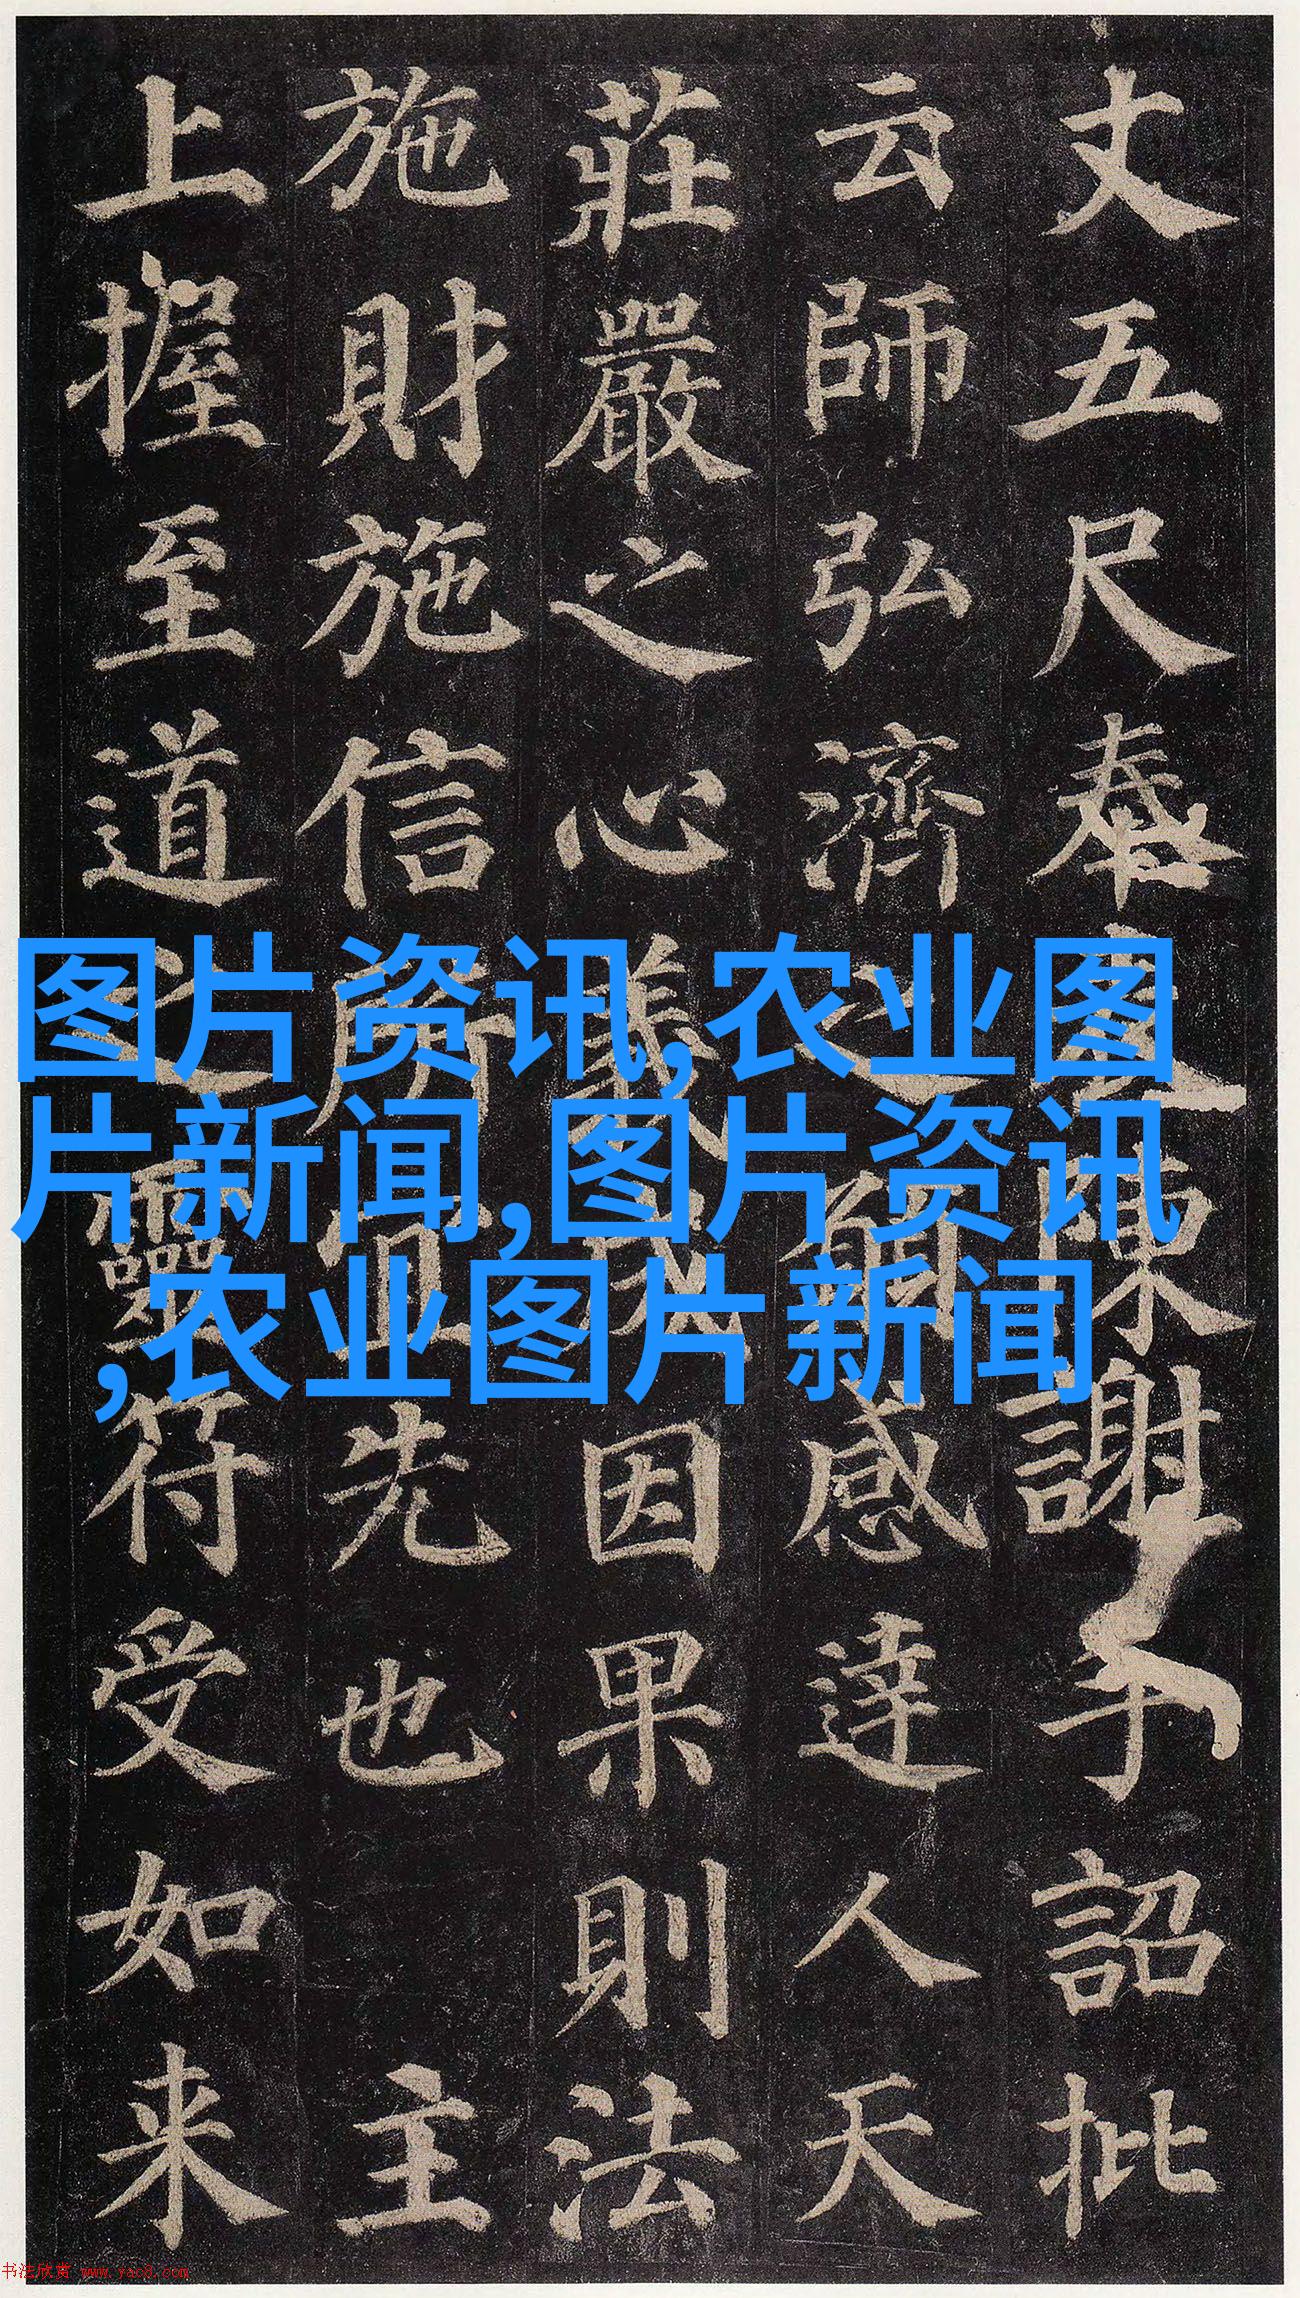 丈五尺奉表陳謝手詔批
云師弘濟之願感達人天
莊嚴之心義成因果則法
施財施信所宜先也 主
上握至道之靈符受如来
图片资讯,农业图
片新闻,图片资讯
,农业图片新闻
书法欣赏 www.yac8.com